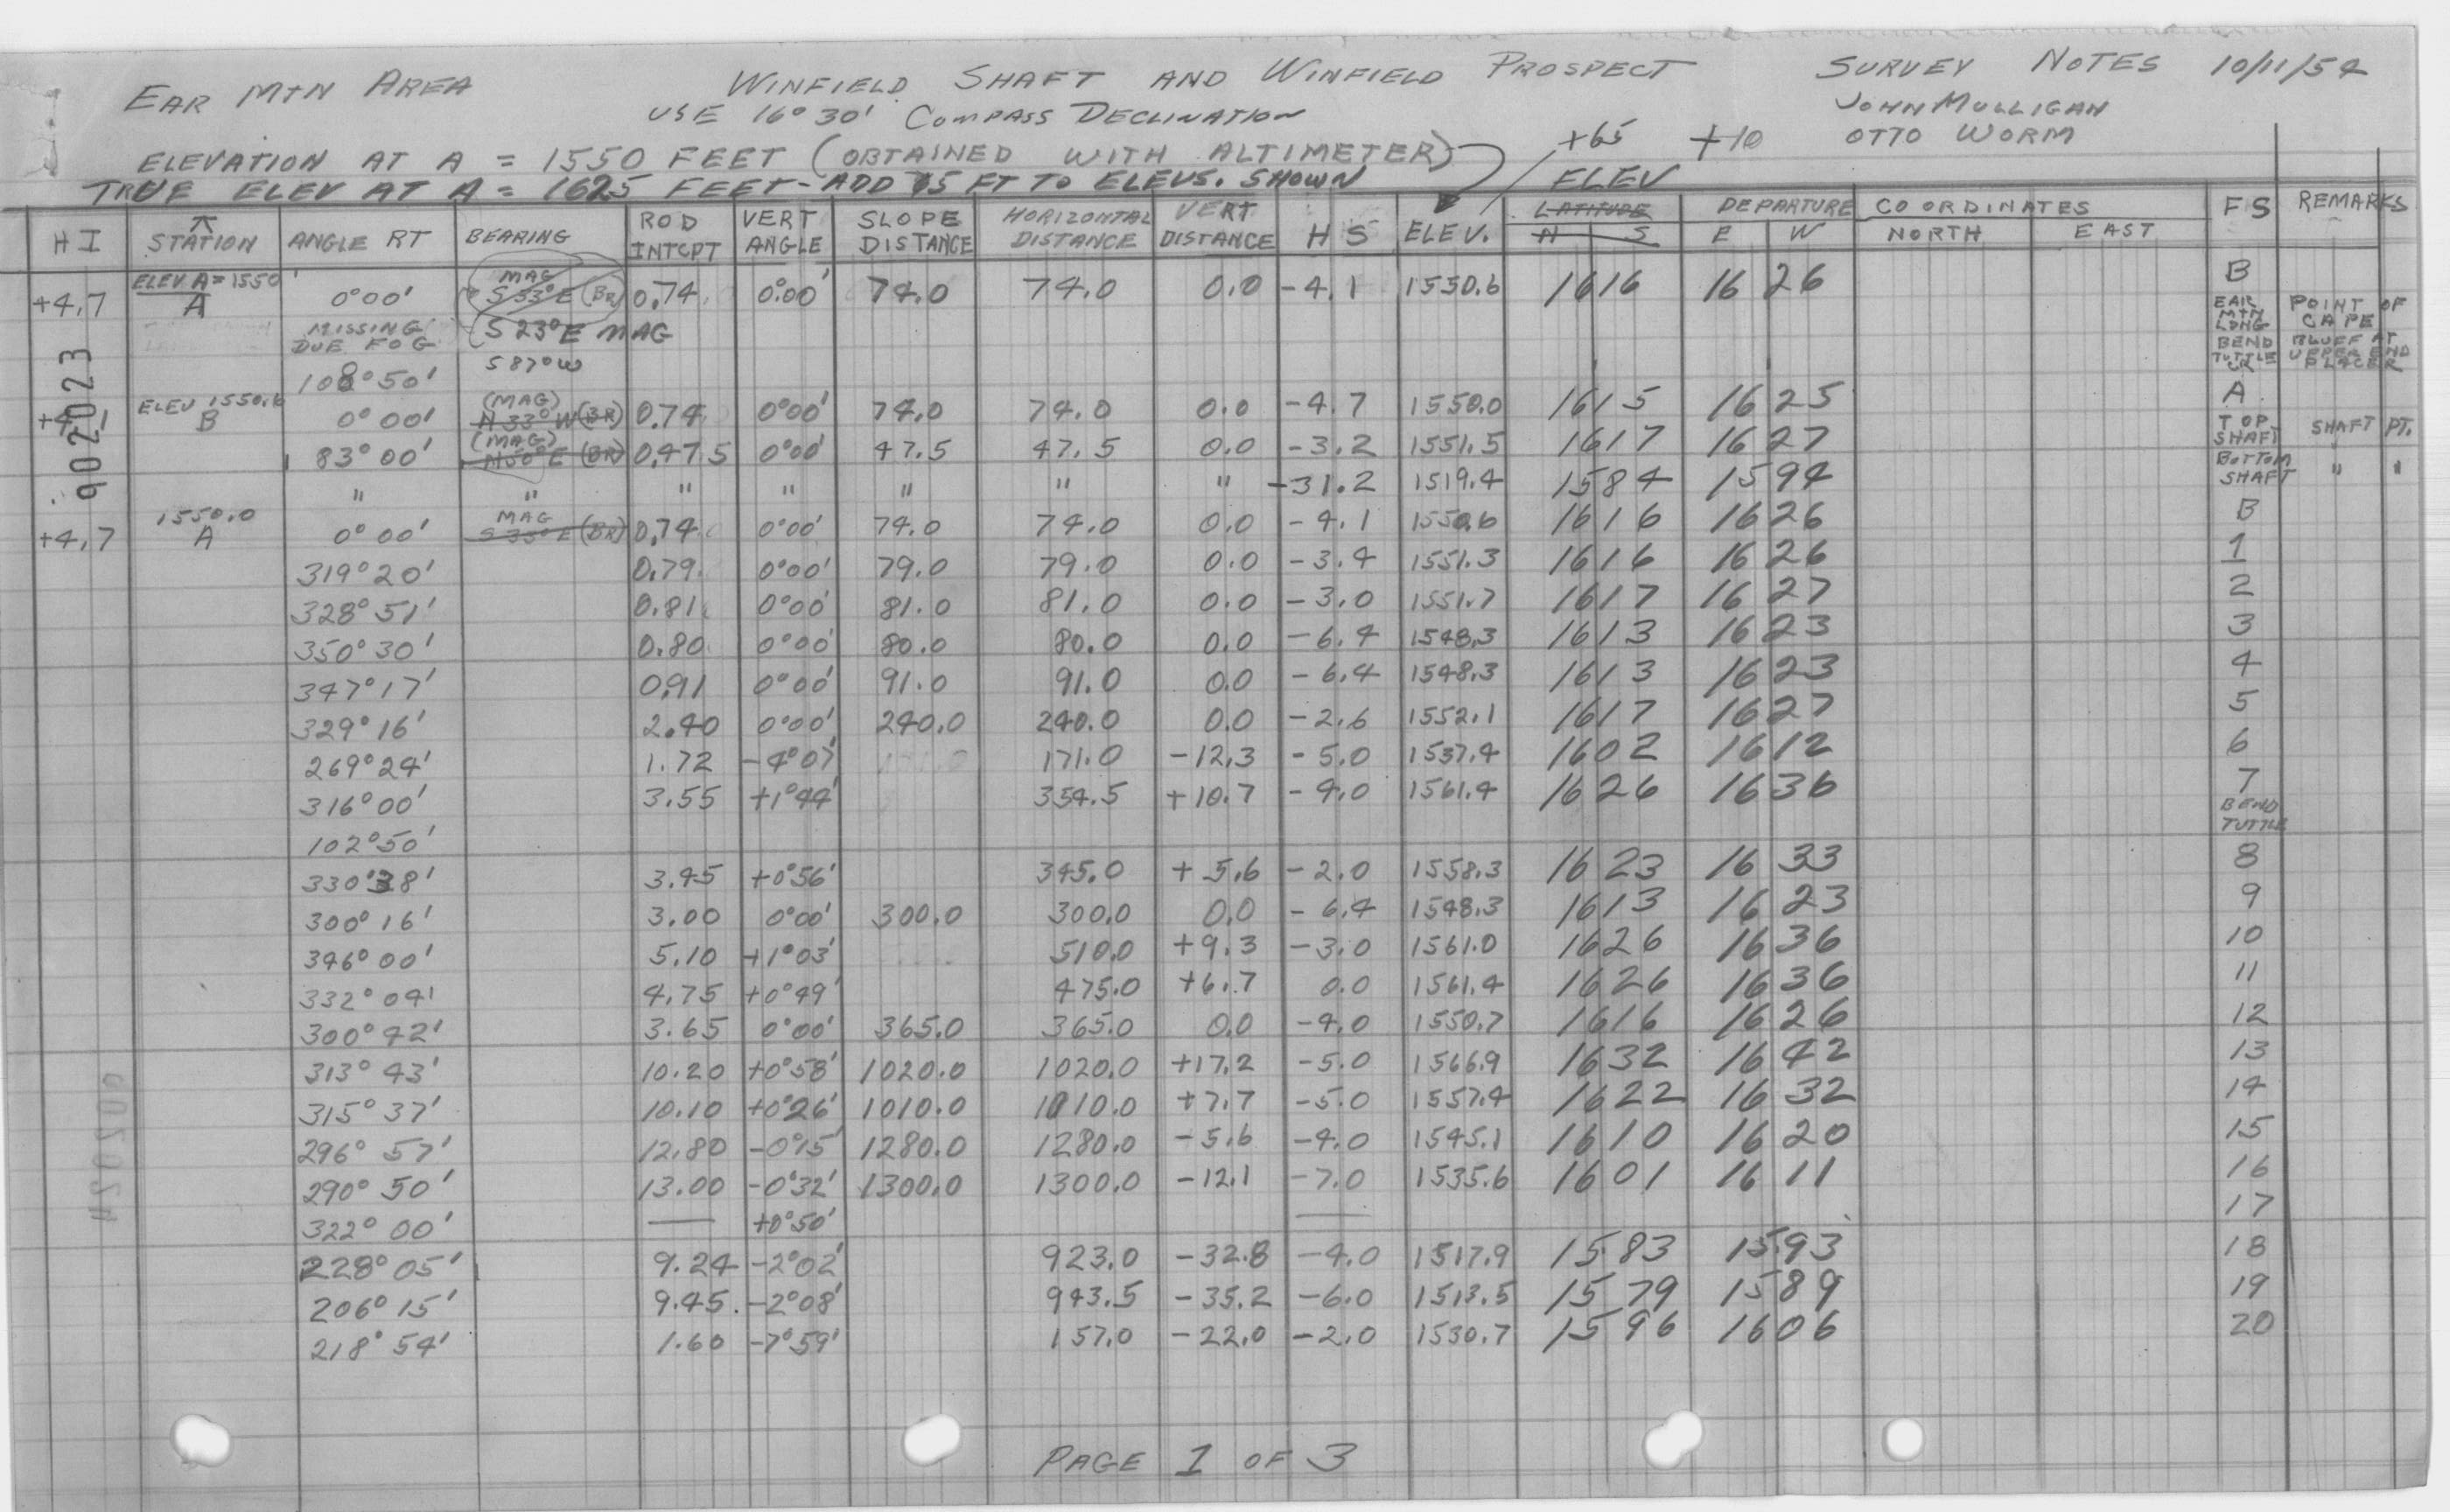 EAR MTN AREA WINFIELD SHAFT AND WINFIELD PROSPECT SURVEY NOTES 10/11/54
USE 16°30' COMPASS DECLINATION JOHN MULLIGAN
+65 +10 OTTO WORM
ELEVATION AT A = 1550 FEET (OBTAINED WITH ALTIMETER)
TRUE ELEV AT A = 1625 FEET - ADD 75 FT TO ELEVS. SHOWN ELEV
HI STATION ANGLE RT BEARING ROD INTCPT VERT ANGLE SLOPE DISTANCE HORIZONTAL DISTANCE VERT DISTANCE HS ELEV. LATITUDE N S DEPARTURE E W COORDINATES NORTH EAST FS REMARKS
ELEV A = 1550' MAG
+4.7 A 0°00' S 33° E (BR) 0.74 0°00' 74.0 74.0 0.0 -4.1 1550.6 1616 1626 B
MISSING DUE FOG (S 23° E MAG EAR MTN LDNG POINT OF CAPE
108°50' S 87° W BEND TUTTLE CR BLUFF AT UPPER END PLACER
ELEV 1550.6 (MAG)
+4.1 B 0°00' N 33° W (BR) 0.74 0°00' 74.0 74.0 0.0 -4.7 1550.0 1615 1625 A
83°00' (MAG) N 50° E (BR) 0.475 0°00' 47.5 47.5 0.0 -3.2 1551.5 1617 1627 TOP SHAFT SHAFT PT.
" " " " " " " -31.2 1519.4 1584 1594 BOTTOM SHAFT " "
1550.0 MAG
+4.7 A 0°00' S 33° E (BR) 0.74 0°00' 74.0 74.0 0.0 -4.1 1550.6 1616 1626 B
319°20' 0.79 0°00' 79.0 79.0 0.0 -3.4 1551.3 1616 1626 1
328°51' 0.81 0°00' 81.0 81.0 0.0 -3.0 1551.7 1617 1627 2
350°30' 0.80 0°00' 80.0 80.0 0.0 -6.4 1548.3 1613 1623 3
347°17' 0.91 0°00' 91.0 91.0 0.0 -6.4 1548.3 1613 1623 4
329°16' 2.40 0°00' 240.0 240.0 0.0 -2.6 1552.1 1617 1627 5
269°24' 1.72 -4°07' 171.0 -12.3 -5.0 1537.4 1602 1612 6
316°00' 3.55 +1°44' 354.5 +10.7 -4.0 1561.4 1626 1636 7
102°50' BEND TUTTLE
330°38' 3.45 +0°56' 345.0 +5.6 -2.0 1558.3 1623 1633 8
300°16' 3.00 0°00' 300.0 300.0 0.0 -6.4 1548.3 1613 1623 9
346°00' 5.10 +1°03' 510.0 +9.3 -3.0 1561.0 1626 1636 10
332°04' 4.75 +0°49' 475.0 +6.7 0.0 1561.4 1626 1636 11
300°42' 3.65 0°00' 365.0 365.0 0.0 -4.0 1550.7 1616 1626 12
313°43' 10.20 +0°58' 1020.0 1020.0 +17.2 -5.0 1566.9 1632 1642 13
315°37' 10.10 +0°26' 1010.0 1010.0 +7.7 -5.0 1557.4 1622 1632 14
296°57' 12.80 -0°15' 1280.0 1280.0 -5.6 -4.0 1545.1 1610 1620 15
290°50' 13.00 -0°32' 1300.0 1300.0 -12.1 -7.0 1535.6 1601 1611 16
322°00' — +0°50' — 17
228°05' 9.24 -2°02' 923.0 -32.8 -4.0 1517.9 1583 1593 18
206°15' 9.45 -2°08' 943.5 -35.2 -6.0 1513.5 1579 1589 19
218°54' 1.60 -7°59' 157.0 -22.0 -2.0 1530.7 1596 1606 20
PAGE 1 OF 3
902023